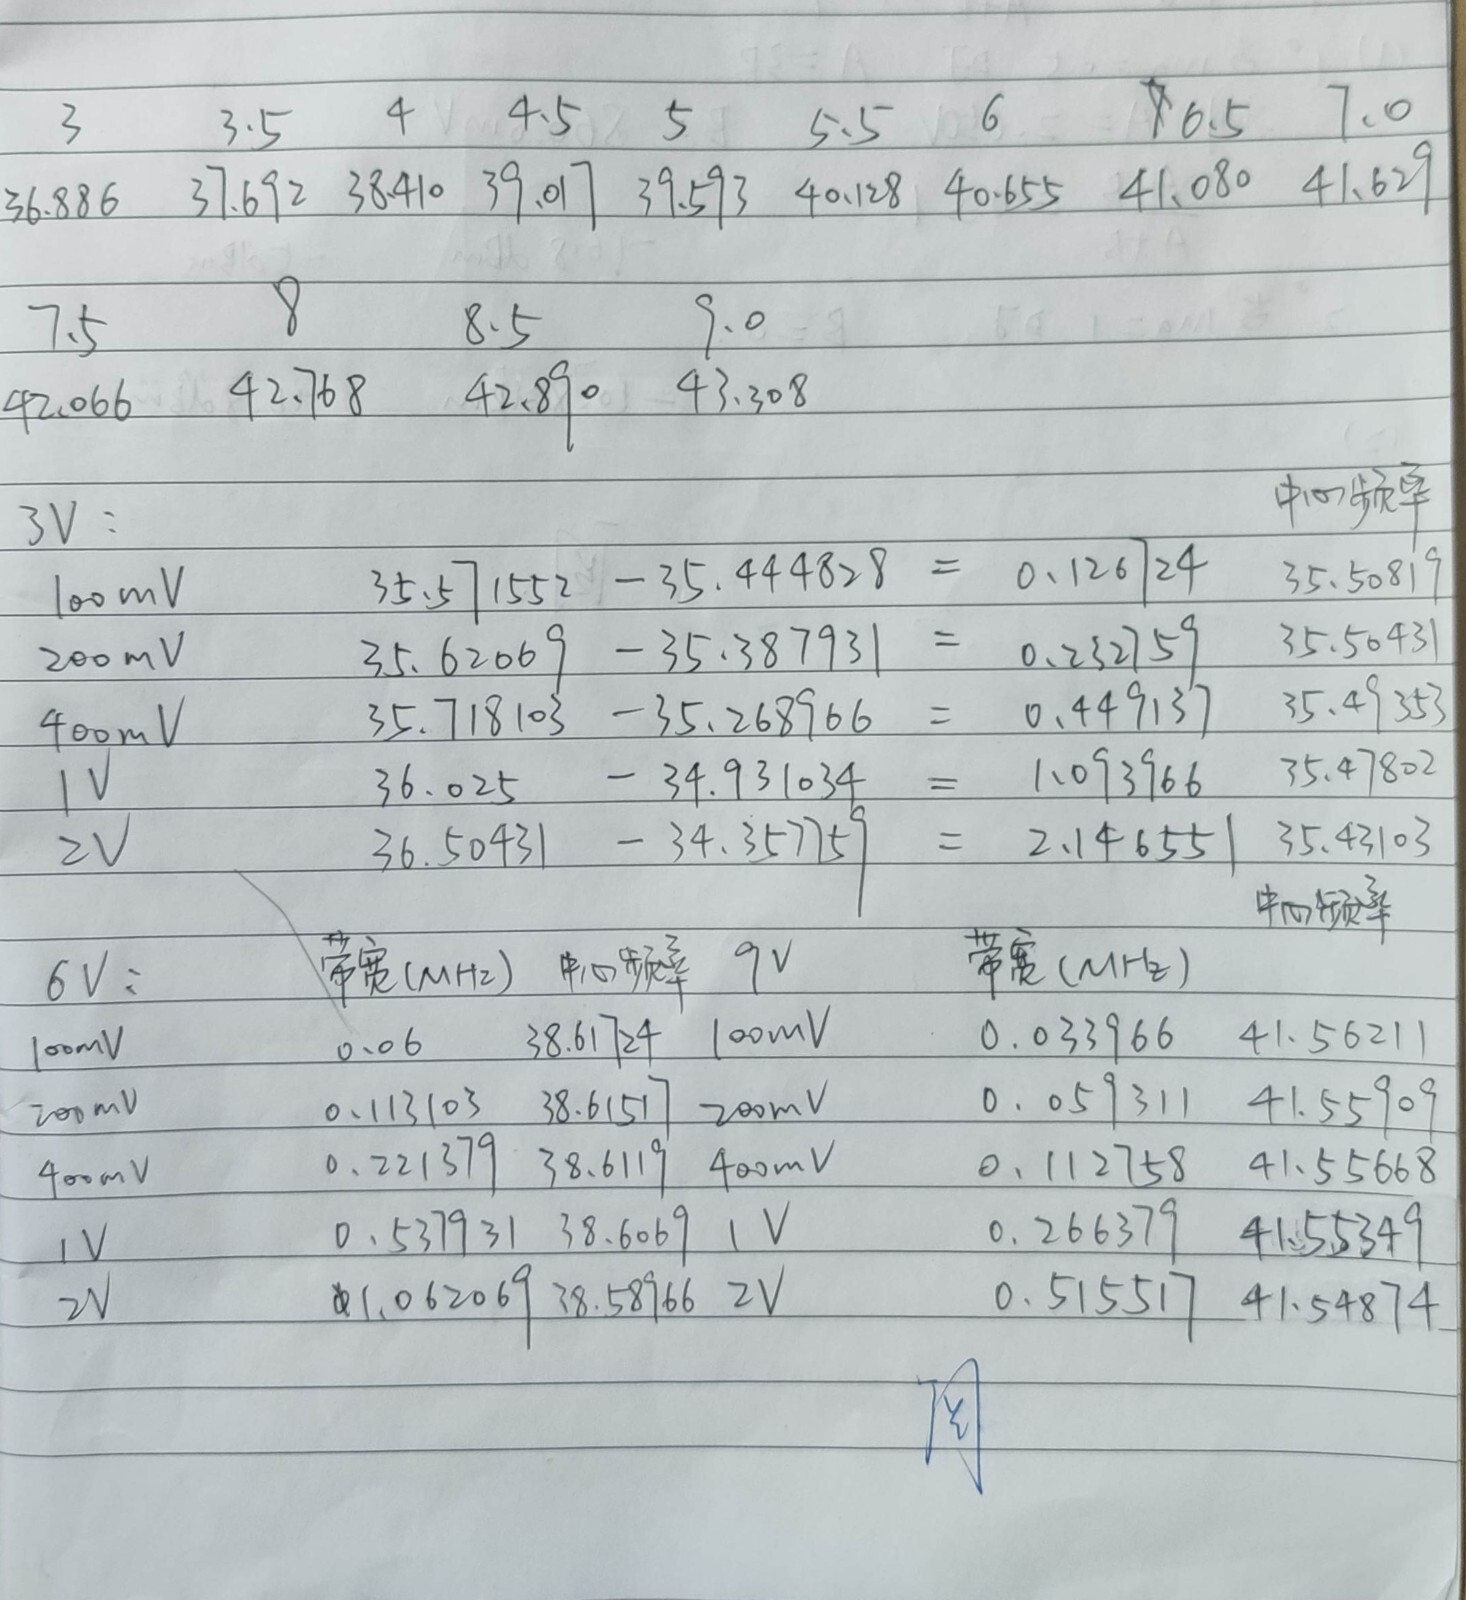 3 3.5 4 4.5 5 5.5 6 6.5 7.0
36.886 37.692 38.410 39.017 39.593 40.128 40.655 41.080 41.629
7.5 8 8.5 9.0
42.066 42.768 42.890 43.308
中心频率
3V:
100mV 35.571552 - 35.444828 = 0.126724 35.50819
200mV 35.62069 - 35.387931 = 0.232759 35.50431
400mV 35.718103 - 35.268966 = 0.449137 35.49353
1V 36.025 - 34.931034 = 1.093966 35.47802
2V 36.50431 - 34.357759 = 2.146551 35.43103
中心频率
6V: 带宽(MHz) 中心频率 9V 带宽(MHz)
100mV 0.06 38.61724 100mV 0.033966 41.56211
200mV 0.113103 38.61517 200mV 0.059311 41.55909
400mV 0.221379 38.6119 400mV 0.112758 41.55668
1V 0.537931 38.6069 1V 0.266379 41.55349
2V 1.062069 38.58966 2V 0.515517 41.54874